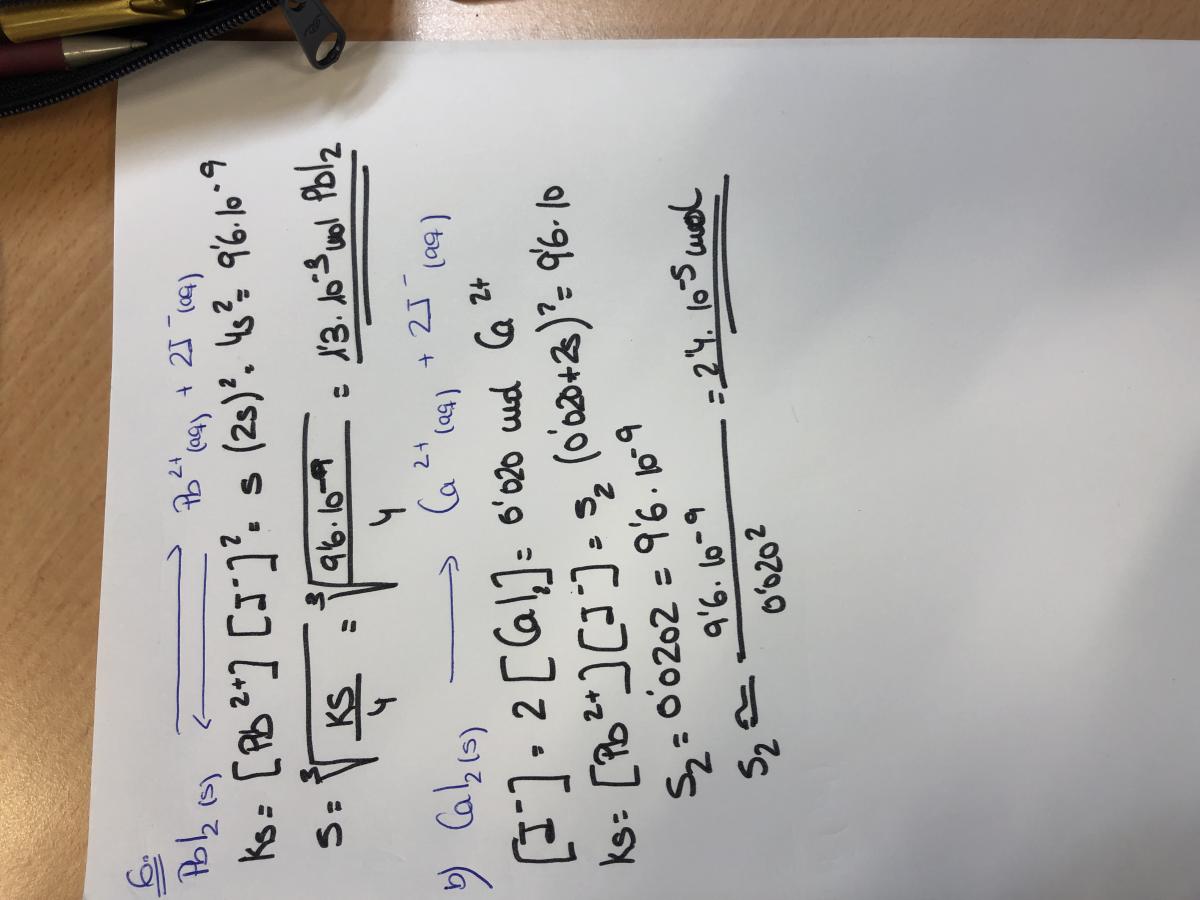 6..
PbI2 (s) ⇄ Pb2+ (aq) + 2I- (aq)
Ks = [Pb2+] [I-]2 = s (2s)2 = 4s2 = 9'6·10-9
s = ∛(Ks/4) = ∛(9'6·10-9/4) = 1'3·10-3 mol PbI2
b) CaI2 (s) → Ca2+ (aq) + 2I- (aq)
[I-] = 2 [CaI2] = 0'020 mol Ca2+
Ks = [Pb2+] [I-] = s2 (0'020+2s)2 = 9'6·10
s2 = 0'0202 = 9'6·10-9
s2 ≅ 9'6·10-9 / 0'0202 = 2'4·10-5 mol